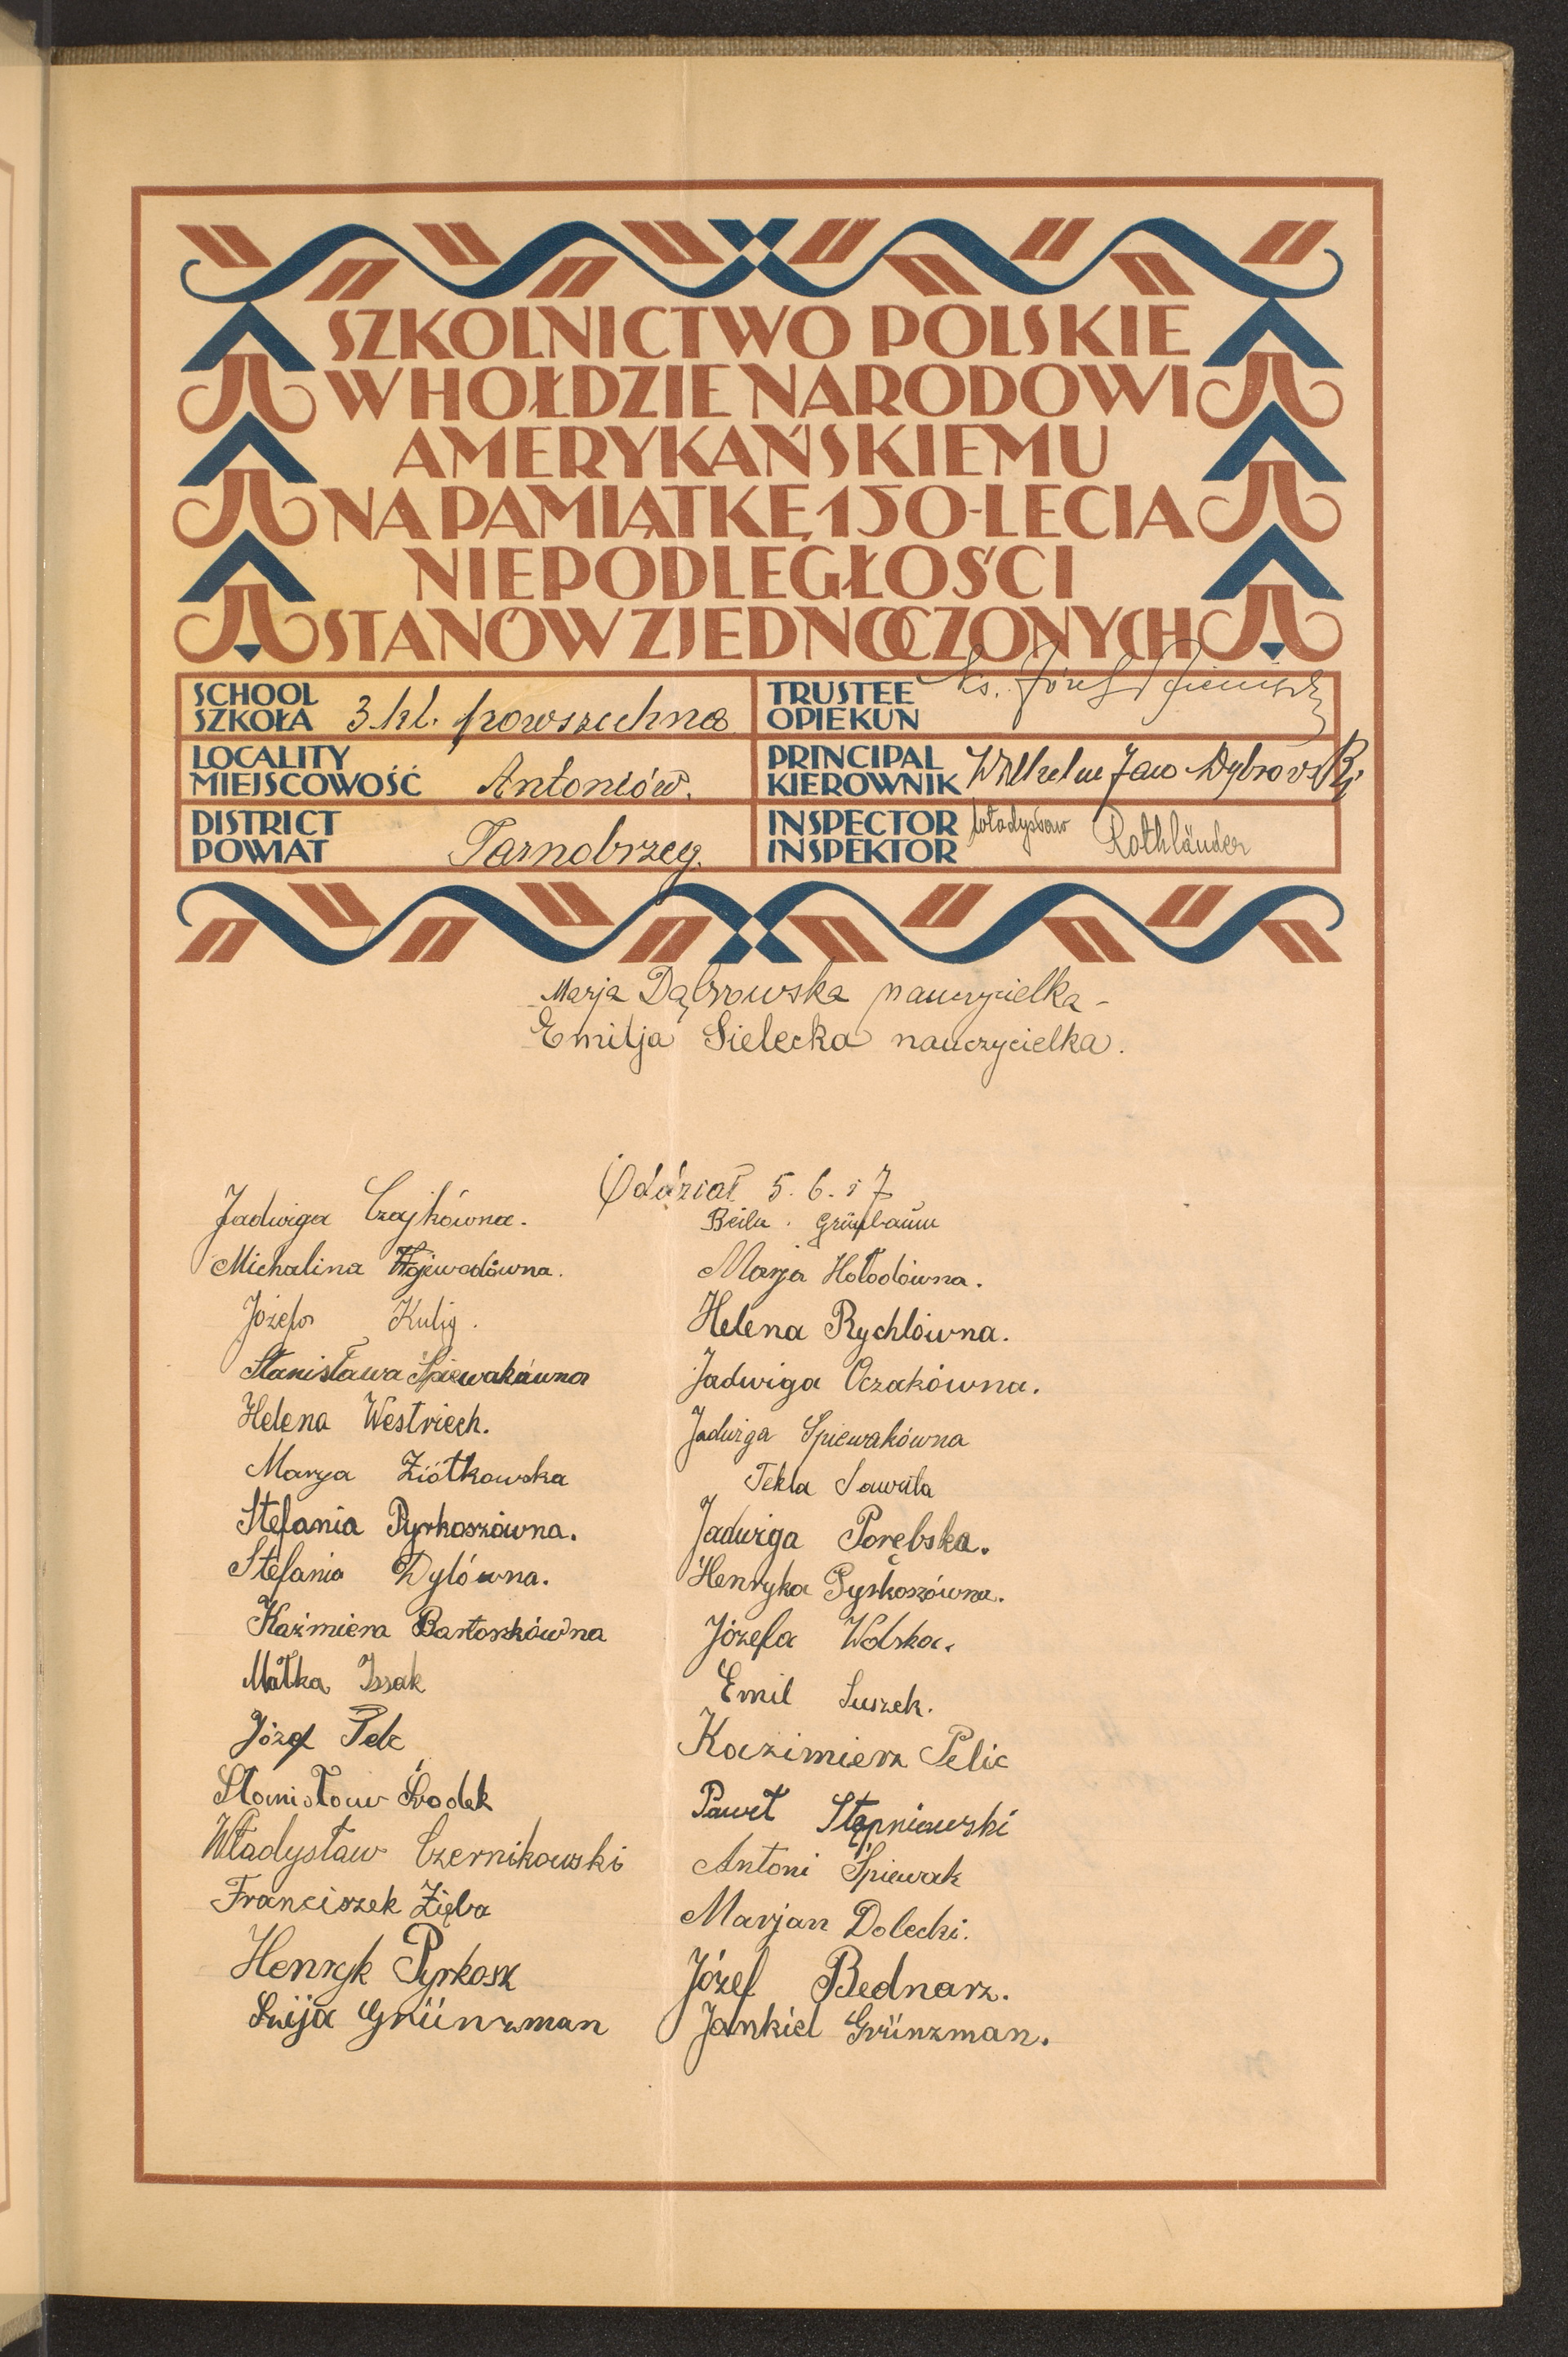 SZKOLNICTWO POLSKIE
W HOŁDZIE NARODOWI
AMERYKAŃSKIEMU
NA PAMIĄTKĘ 150-LECIA
NIEPODLEGŁOŚCI
STANÓW ZJEDNOCZONYCH
SCHOOL
SZKOŁA 3 kl. powszechna
LOCALITY
MIEJSCOWOŚĆ Antoniów.
DISTRICT
POWIAT Tarnobrzeg.
TRUSTEE
OPIEKUN Ks. Józef
PRINCIPAL
KIEROWNIK Wilhelm Jan Dybrowski
INSPECTOR
INSPEKTOR Władysław Rothländer
Marja Dąbrowska nauczycielka -
Emilja Sielecka nauczycielka.
Oddział 5. 6. i 7
Jadwiga Czajkówna.
Michalina Wojewodówna.
Józefa Kulig.
Stanisława Spiewakówna
Helena Westriech.
Marya Ziótkowska
Stefania Pyrkoszówna.
Stefania Dylówna.
Kaźmiera Bartoszkówna
Matka Issak
Józef Pelc
Stanisław Środek
Władysław Czernikowski
Franciszek Zięba
Henryk Pyrkosz
Grünzman
Beila Grünbaum
Marja Hołodówna.
Helena Rychlówna.
Jadwiga Oczakówna.
Jadwiga Spiewakówna
Tekla Sawuła
Jadwiga Porębska.
Henryka Pyrkoszówna.
Józefa Wolska.
Emil Suszek.
Kazimierz Pelic
Paweł Stępniowski
Antoni Śpiewak
Marjan Dolecki.
Józef Bednarz.
Jankiel Grünzman.